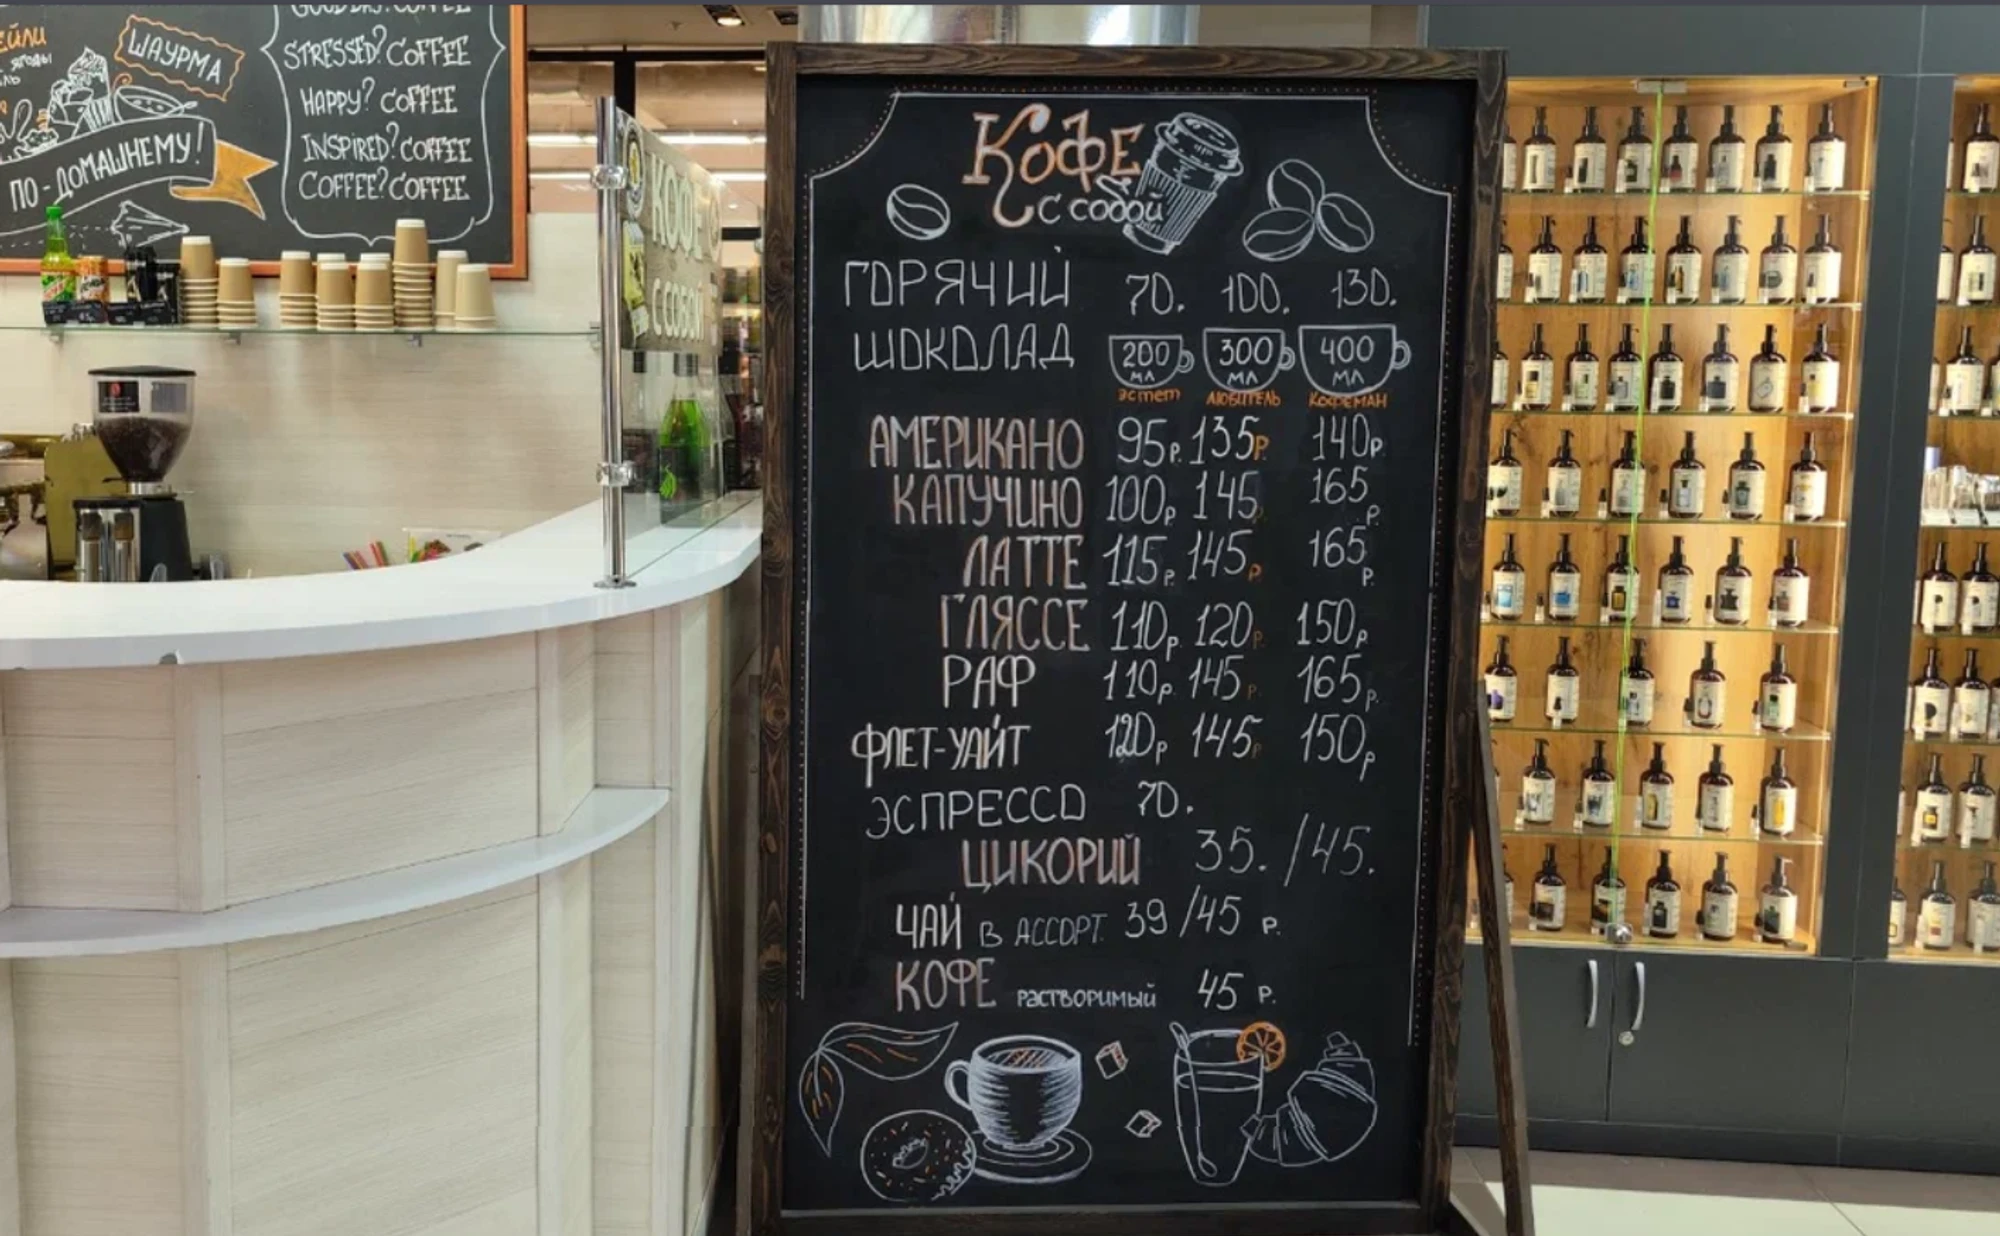 ШАУРМА
ПО-ДОМАШНЕМУ!
STRESSED? COFFEE
HAPPY? COFFEE
INSPIRED? COFFEE
COFFEE? COFFEE
КОФЕ
С СОБОЙ
Кофе
с собой
ГОРЯЧИЙ 70. 100. 130.
ШОКОЛАД 200 МЛ 300 МЛ 400 МЛ
эстет ЛЮБИТЕЛЬ КОФЕМАН
АМЕРИКАНО 95р. 135р. 140р.
КАПУЧИНО 100р. 145р. 165р.
ЛАТТЕ 115р. 145р. 165р.
ГЛЯССЕ 110р. 120р. 150р.
РАФ 110р. 145р. 165р.
ФЛЕТ-УАЙТ 120р 145р 150р
ЭСПРЕССО 70.
ЦИКОРИЙ 35. /45.
ЧАЙ В АССОРТ. 39 /45 р.
КОФЕ растворимый 45 р.